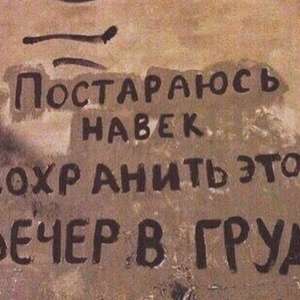 ПОСТАРАЮСЬ
НАВЕК
СОХРАНИТЬ ЭТО
ВЕЧЕР В ГРУД